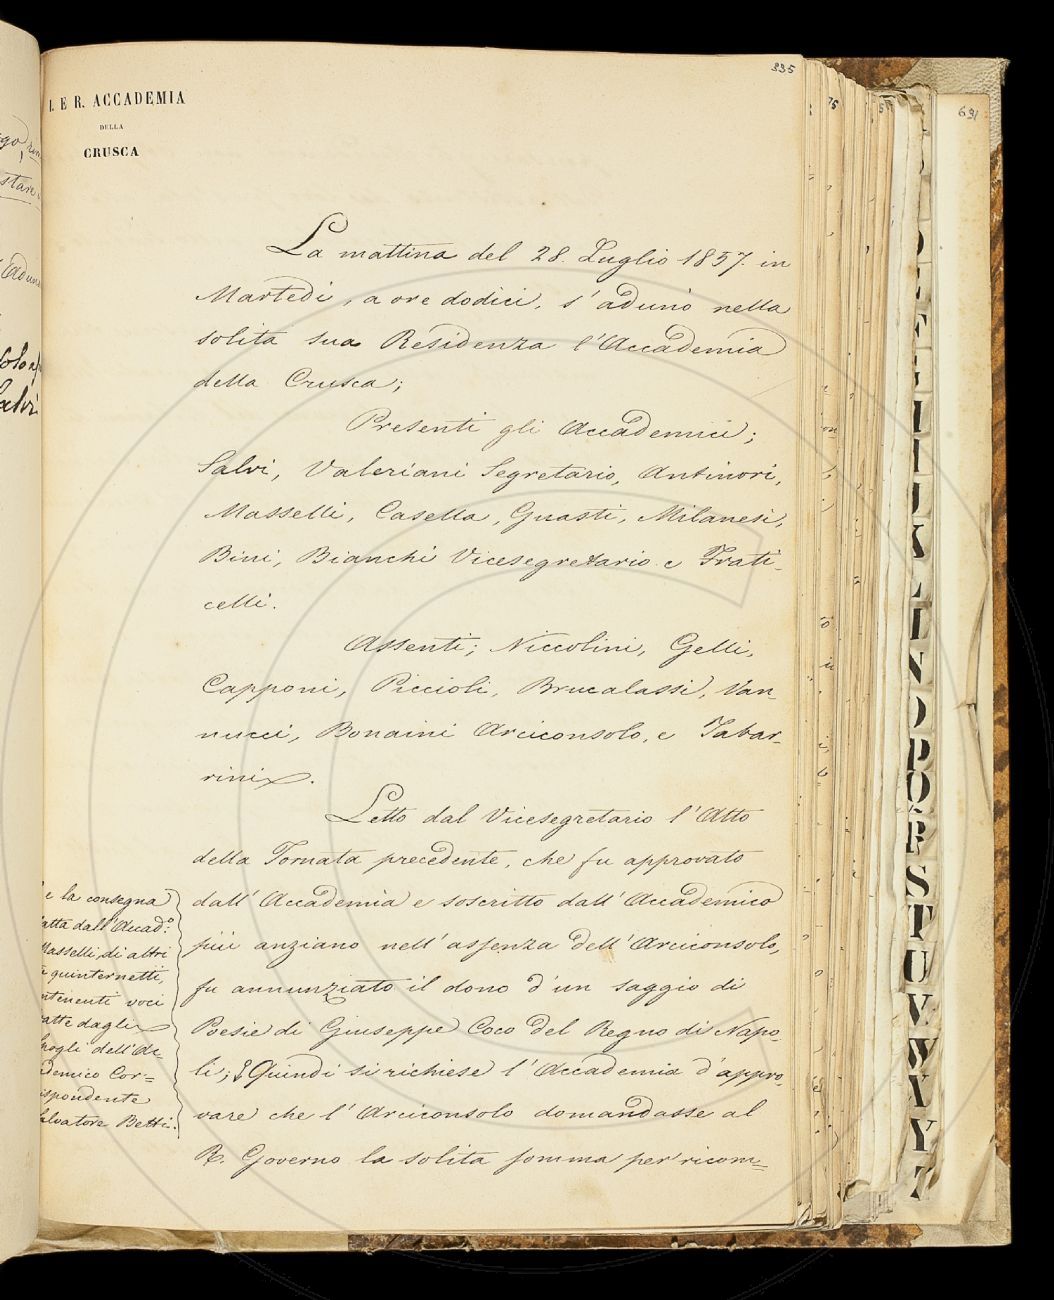 335
I. E R. ACCADEMIA
DELLA
CRUSCA
La mattina del 28. Luglio 1857. in
Martedì, a ore dodici, s'adunò nella
solita sua Residenza l'Accademia
della Crusca;
Presenti gli Accademici;
Salvi, Valeriani Segretario, Antinori,
Masselli, Casella, Guasti, Milanesi,
Bini, Bianchi Vicesegretario e Frati-
celli.
Assenti; Niccolini, Gelli,
Capponi, Piccioli, Brucalassi, Van-
nucci, Bonaini Arciconsolo, e Tabar-
rini.
Letto dal Vicesegretario l'Atto
della Tornata precedente, che fu approvato
dall'Accademia e soscritto dall'Accademico
più anziano nell'assenza dell'Arciconsolo,
fu annunziato il dono d'un saggio di
Poesie di Giuseppe Coco del Regno di Napo-
li; Quindi si richiese l'Accademia d'appro-
vare che l'Arciconsolo domandasse al
R. Governo la solita somma per ricom=
e la consegna
fatta dall'Accad.º
Masselli, di altri
quinternetti,
voci
dagli
dell'Ac-
Cor=
Betti.
691
solo
Salvi
N O P Q R S T U V W X Y Z